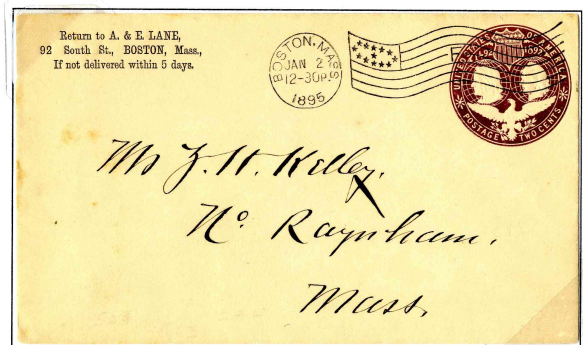 Return to A. & E. LANE,
92 South St., BOSTON, Mass.,
If not delivered within 5 days.
BOSTON, MASS
JAN 2
12-30P.
1895
UNITED STATES OF AMERICA
1492 1892
POSTAGE TWO CENTS
Mr Z. H. Kelley.
No. Raynham.
Mass.